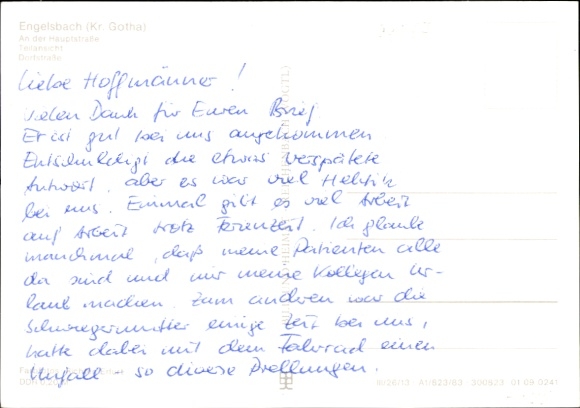 Engelsbach (Kr. Gotha)
An der Hauptstraße
Teilansicht
Dorfstraße
Liebe Hoffmänner!
vielen Dank für Euren Brief
Er ist gut bei uns angekommen.
Entschuldigt die etwas verspätete
Antwort, aber es war viel Hektik
bei uns. Einmal gibt es viel Arbeit
auf Arbeit trotz Ferienzeit. Ich glaube
manchmal, daß meine Patienten alle
da sind und nur meine Kollegen Ur-
laub machen. Zum anderen war die
Schwiegermutter einige Zeit bei uns,
hatte dabei mit dem Fahrrad einen
Unfall - so diverse Prellungen.
III/26/13 A1/823/83 300973 01 09 0241